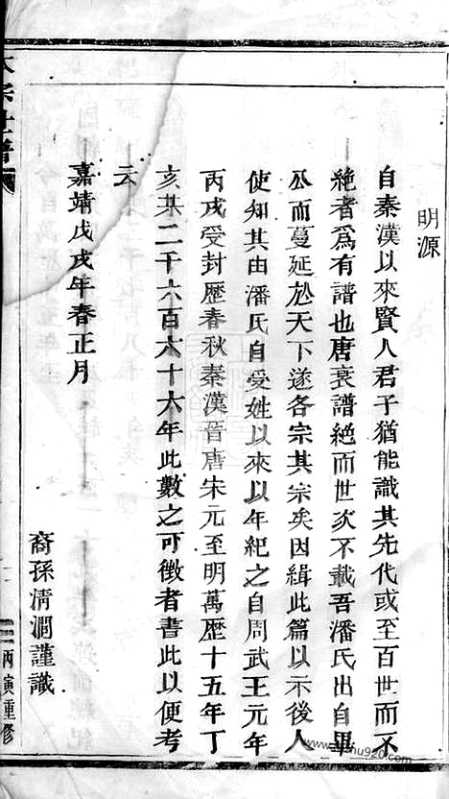 明源
自秦漢以來賢人君子猶能識其先代或至百世而不
絶者爲有譜也唐衰譜絶而世次不載吾潘氏出自畢
公而蔓延於天下遂各宗其宗矣因緝此篇以示後人
使知其由潘氏自受姓以來以年紀之自周武王元年
丙戌受封歷春秋秦漢晉唐宋元至明萬歷十五年丁
亥某二千六百六十六年此數之可徵者書此以便考
云
嘉靖戊戌年春正月
裔孫清澗謹識
重修